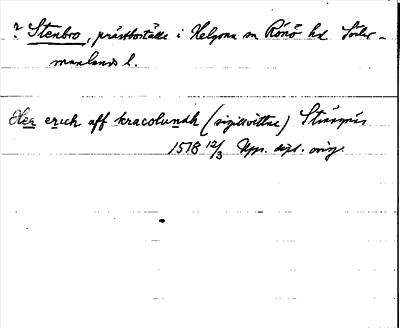 ? Stenbro, prästboställe i Helgona sn Rönö hd Söder-
manlands l.
Her erich aff kracolundh (sigillvittne) Strängnäs
1578 12/3 Upps. dipl. orig.